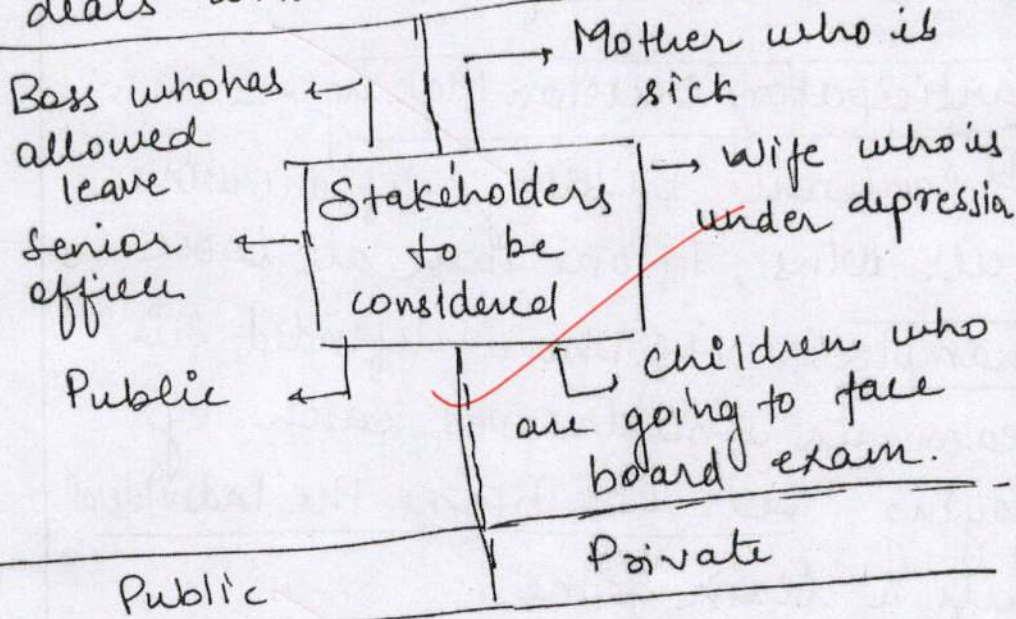 deals
Boss who has
allowed
leave
senior
officer
Public
Stakeholders
to be
considered
Mother who is
sick
Wife who is
under depression
children who
are going to face
board exam.
Public
Private